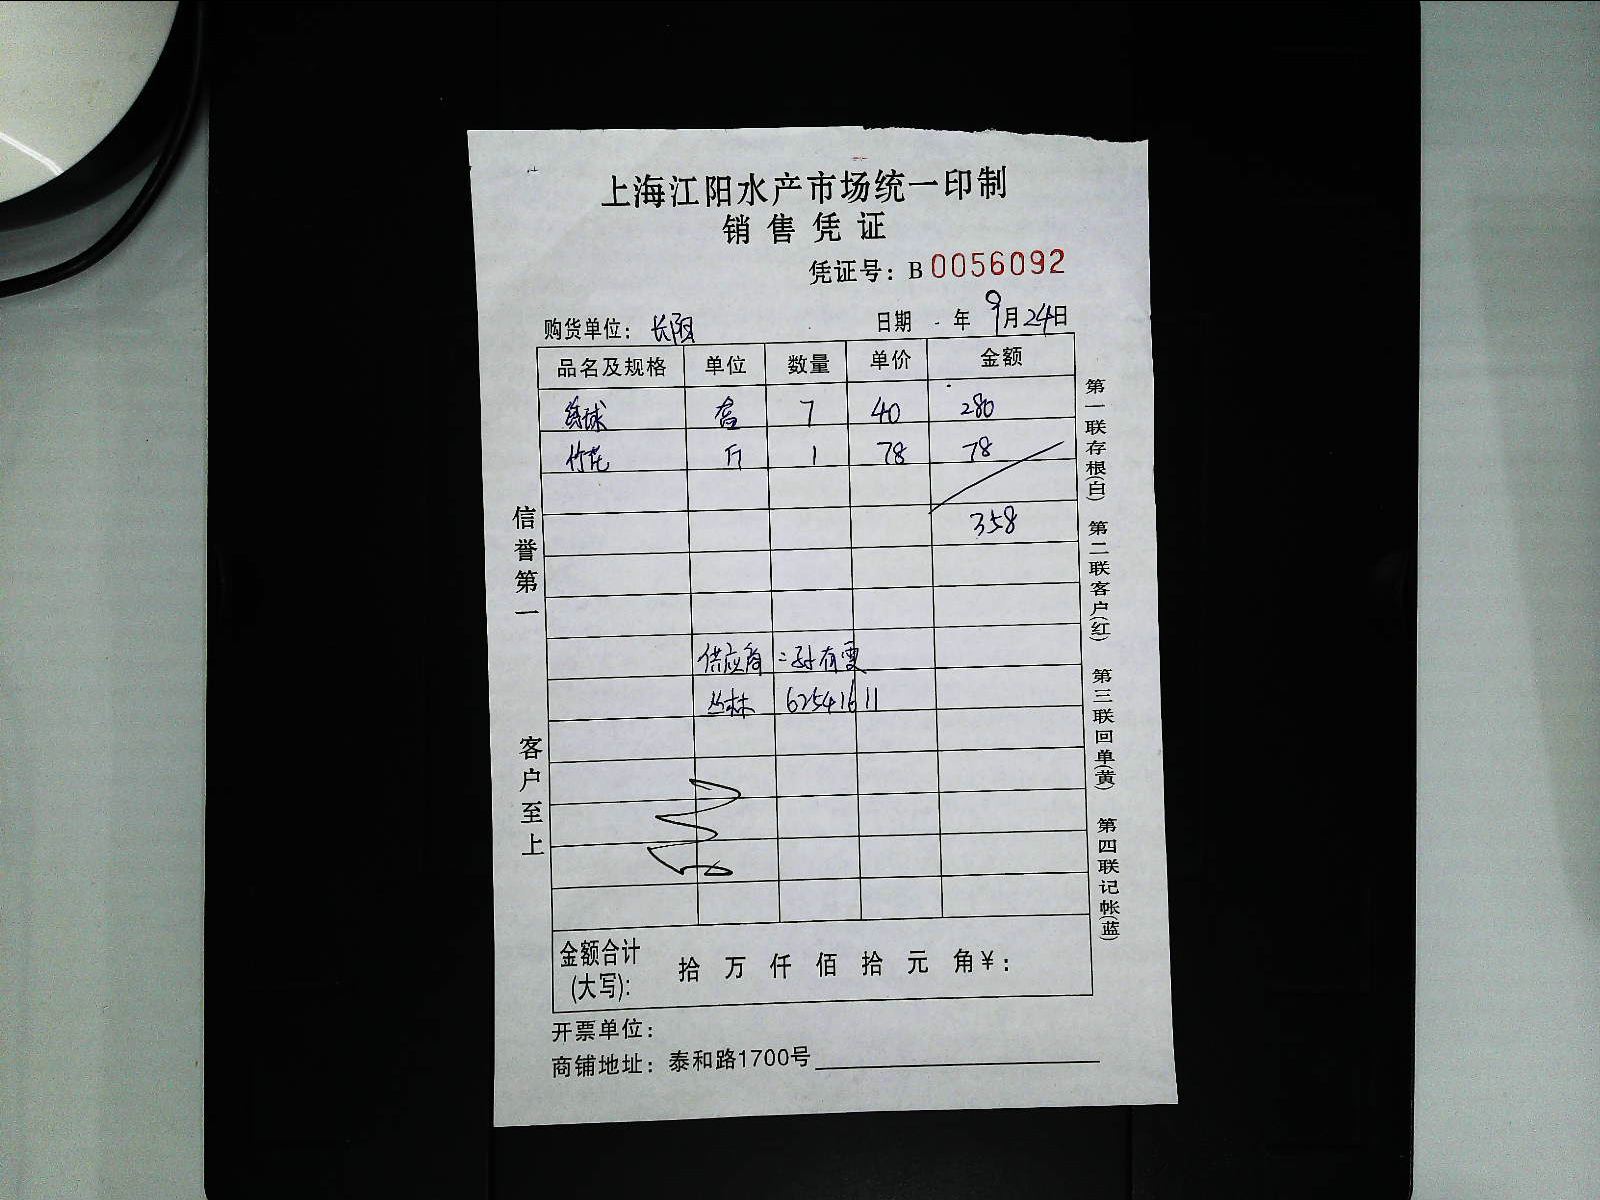 上海江阳水产市场统一印制
销售凭证
凭证号：B 0056092
购货单位：长阳 日期 年 9月24日
品名及规格 单位 数量 单价 金额
球 盒 7 40 280
竹花 斤 1 78 78
358
供应商：孙有雯
丛林 62541611
金额合计 拾 万 仟 佰 拾 元 角 ¥：
(大写)：
开票单位：
商铺地址：泰和路1700号
信誉第一
客户至上
第一联存根(白) 第二联客户(红) 第三联回单(黄) 第四联记帐(蓝)